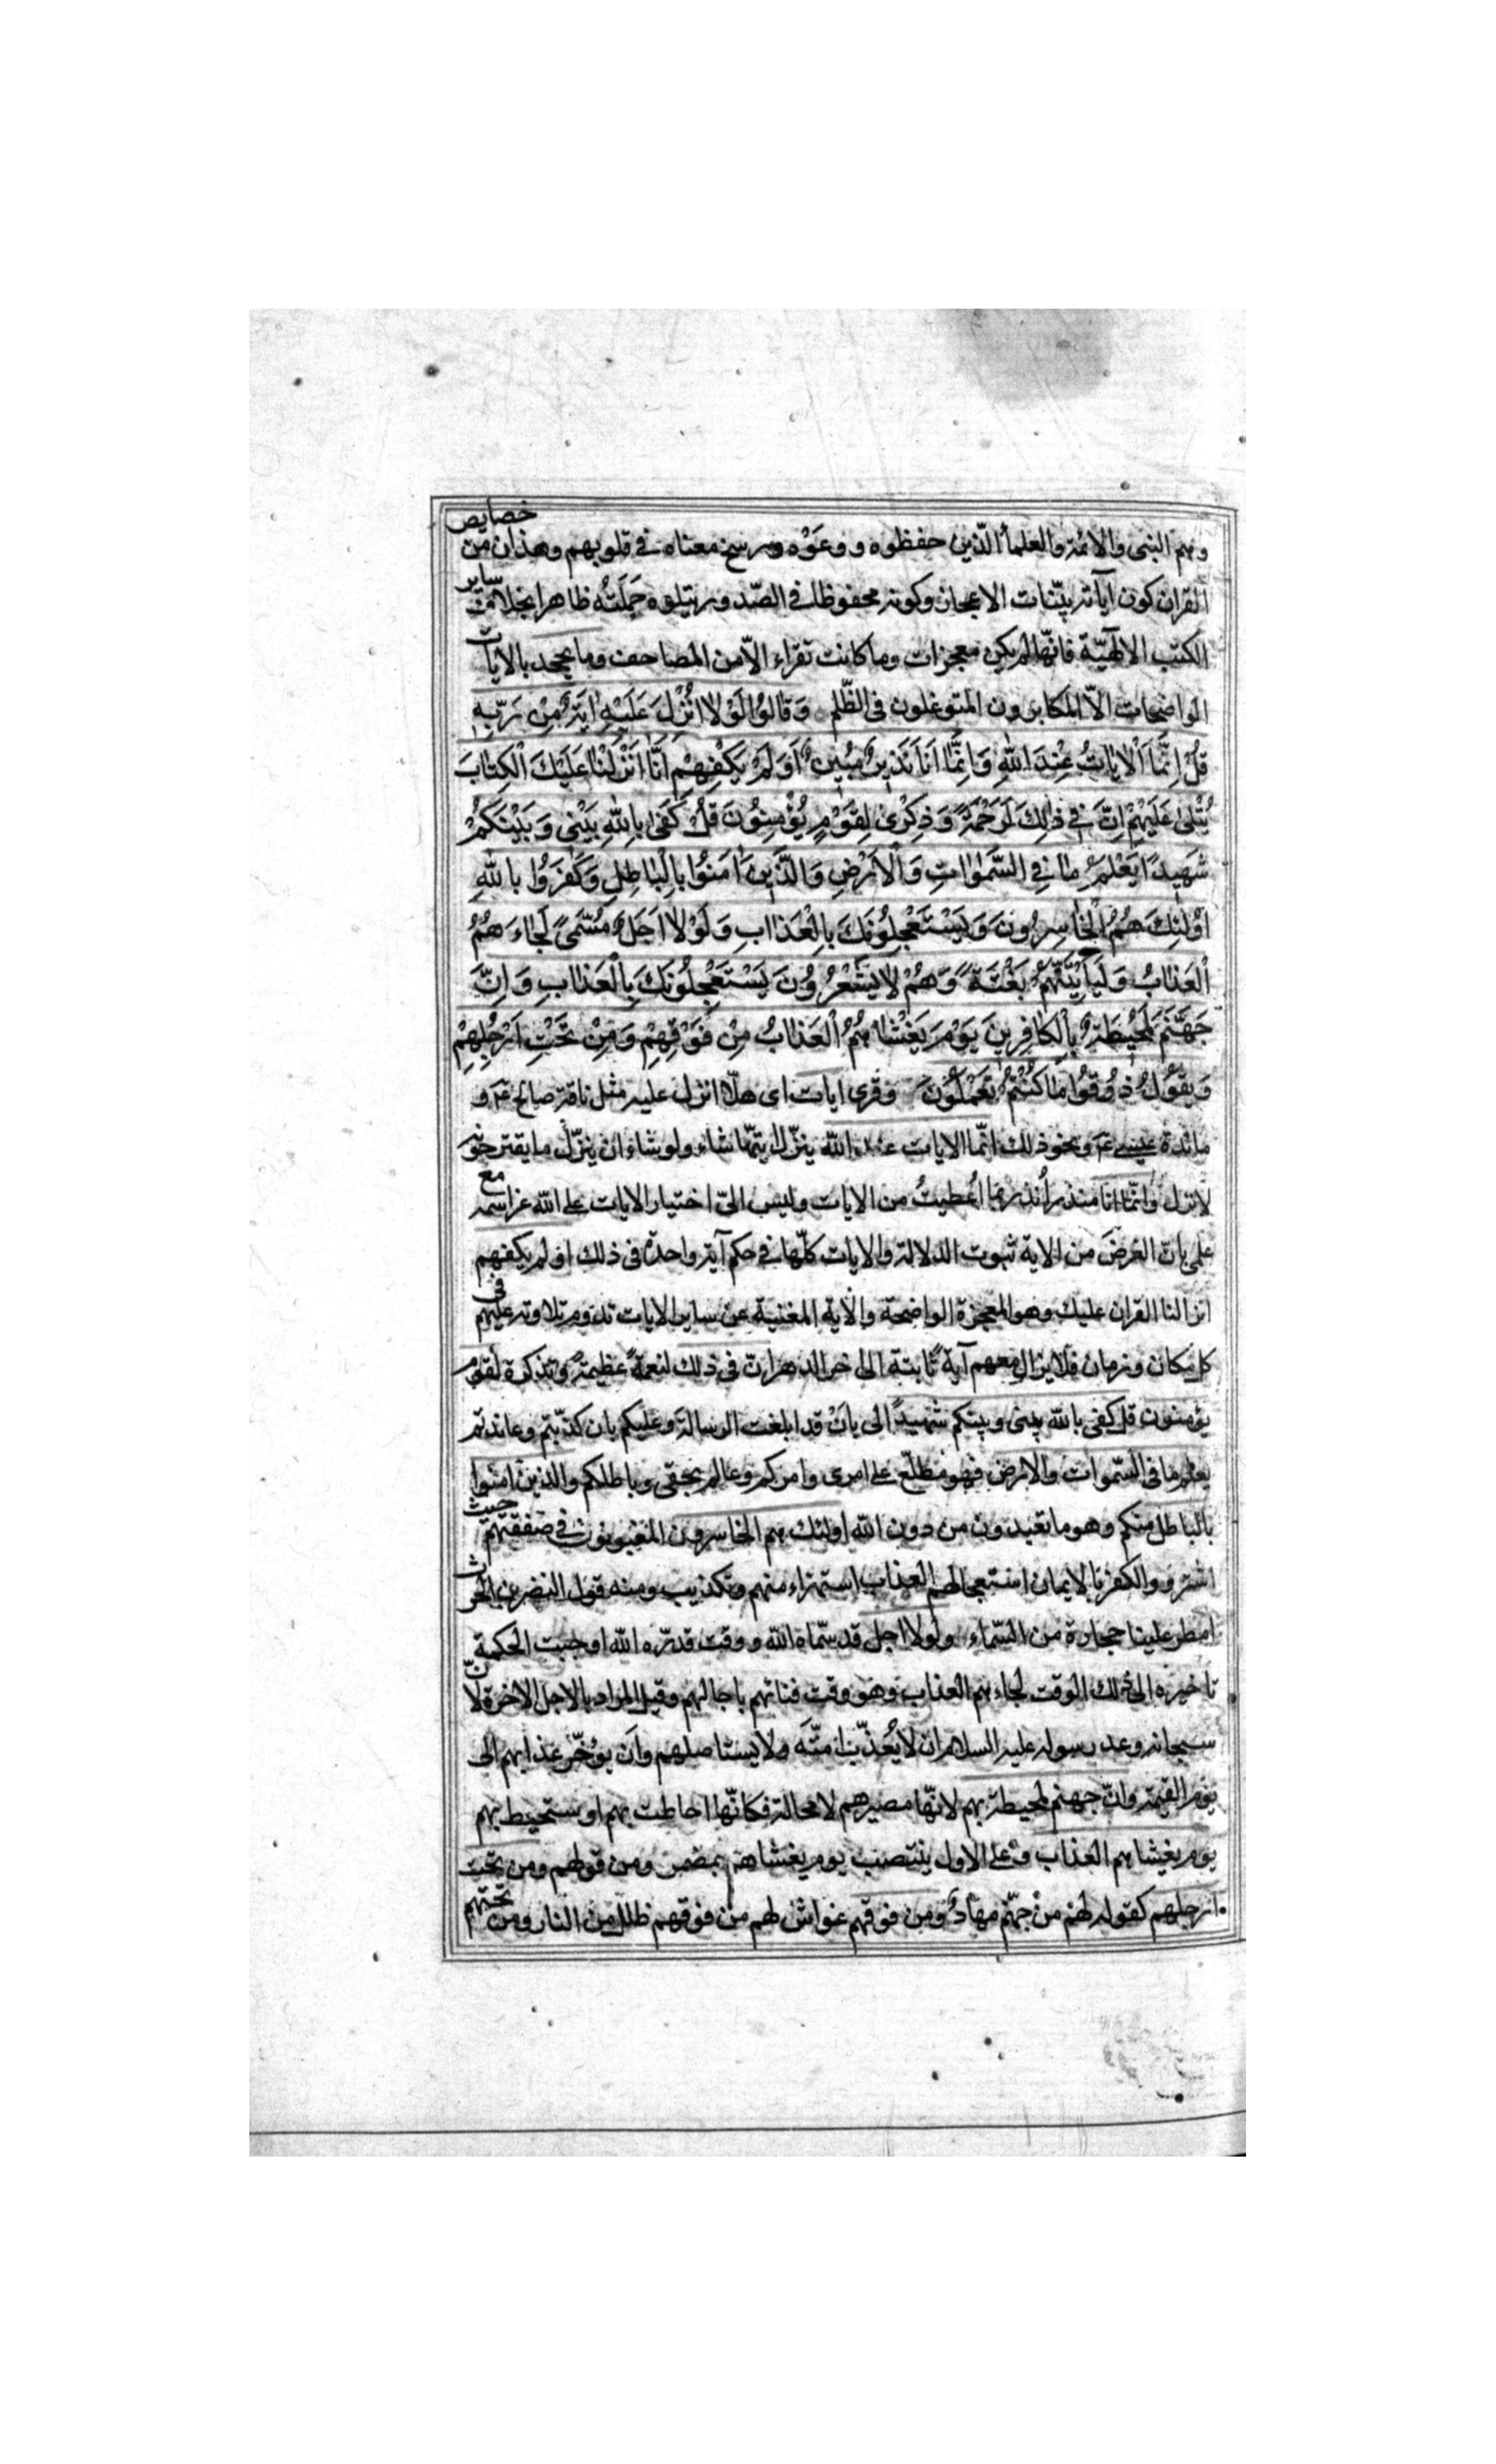 وهم النبى والائمة والعلماء الّذين حفظوه ووعَوْه ورسخ معناه فى قلوبهم وهذان من خصايص
القران كون آياته بيّنات الاعجاز وكونه محفوظا فى الصّدور يتلوه حَمَلَتُه ظاهرا بخلاف ساير
الكتب الالٰهيّة فانّها لم يكن معجزات وما كانت تقراء الاّ من المصاحف وما يجحد بالايات
الواضحات الاّ المكابرون المتوغلون فى الظّلم وَقالُوا لَوْلا اُنْزِلَ عَلَيْهِ ايَةٌ مِنْ رَبِّهِ
قُلْ اِنَّمَا اْلاياتُ عِنْدَ اللهِ وَاِنَّما اَنَا نَذيرٌ مُبينٌ اَوَلَمْ يَكْفِهِمْ اَنّا اَنْزَلْنا عَلَيْكَ الْكِتابَ
يُتْلى عَلَيْهِمْ اِنَّ فى ذلِكَ لَرَحْمَةً وَذِكْرى لِقَوْمٍ يُؤْمِنُونَ قُلْ كَفى بِاللهِ بَيْنى وَبَيْنَكُمْ
شَهيدًا يَعْلَمُ ما فِى السَّمٰواتِ وَاْلاَرْضِ وَالَّذينَ امَنُوا بِالْباطِلِ وَكَفَرُوا بِاللهِ
اُولئِكَ هُمُ الْخاسِرُونَ وَيَسْتَعْجِلُونَكَ بِالْعَذابِ وَلَوْلا اَجَلٌ مُسَمًّى لَجاءَهُمُ
الْعَذابُ وَلَيَاْتِيَنَّهُمْ بَغْتَةً وَهُمْ لا يَشْعُرُونَ يَسْتَعْجِلُونَكَ بِالْعَذابِ وَاِنَّ
جَهَنَّمَ لَمُحيطَةٌ بِالْكافِرينَ يَوْمَ يَغْشاهُمُ الْعَذابُ مِنْ فَوْقِهِمْ وَمِنْ تَحْتِ اَرْجُلِهِمْ
وَيَقُولُ ذُوقُوا ما كُنْتُمْ تَعْمَلُونَ وقرى ايات اى هلاّ انزل عليه مثل ناقة صالح ع م و
مائدة عيسى ع م ونحو ذلك انّما الايات عند الله ينزّل ايتها شاء ولو شاء ان ينزّل ما يقترحونه
لانزل وانّما انا منذر اُنذر بما اُعطيتُ من الايات وليس الىّ اختيار الايات على الله عز اسمه مع
علمى بانّ الغرض من الاية ثبوت الدلالة والايات كلّها فى حكم آية واحدة فى ذلك اولم يكفهم
انزالنا القران عليك وهو المعجزة الواضحة والاية المغنية عن ساير الايات تدوم تلاوته عليهم فى
كل مكان وزمان فلا يزال معهم آية ثابتة الى اخر الدهر انّ فى ذلك لنعمةً عظيمةً وتذكرة لقوم
يؤمنون قل كفى بالله بينى وبينكم شهيدًا الى بانْ قد ابلغت الرسالة وعليكم بان كذّبتم وعاندتم
يعلم ما فى السّموات والارض فهو مطلّع على امرى وامركم وعالم بحقى وباطلكم والذين امنوا
بالباطل منكم وهو ما تعبدون من دون الله اولئك هم الخاسرون المغبونون فى صفقتهم حيث
اشتروا الكفر بالايمان استعجالهم العذاب استهزاء منهم وتكذيب ومنه قول النضر بن الحرث
امطر علينا حجارة من السّماء ولولا اجل قد سمّاه الله ووقت قدّره الله اوجبت الحكمة
تاخيره الى ذلك الوقت لجاءهم العذاب وهو وقت فنائهم باجالهم وقيل المراد بالاجل الاخرة لانّ
سبحانه وعد رسوله عليه السلام ان لا يُعذّب امّته ولا يستاصلهم وان يؤخّر عذابهم الى
يوم القيمة وانّ جهنم لمحيطة بهم لانّها مصيرهم لا محالة فكانّها احاطت بهم او ستحيط بهم
يوم يغشاهم العذاب وعلى الاول ينتصب يوم يغشاهم بمضمر ومن فوقهم ومن تحت
ارجلهم كقوله لهم من جهنّم مهادٌ ومن فوقهم غواش لهم من فوقهم ظلل من النار ومن تحتهم